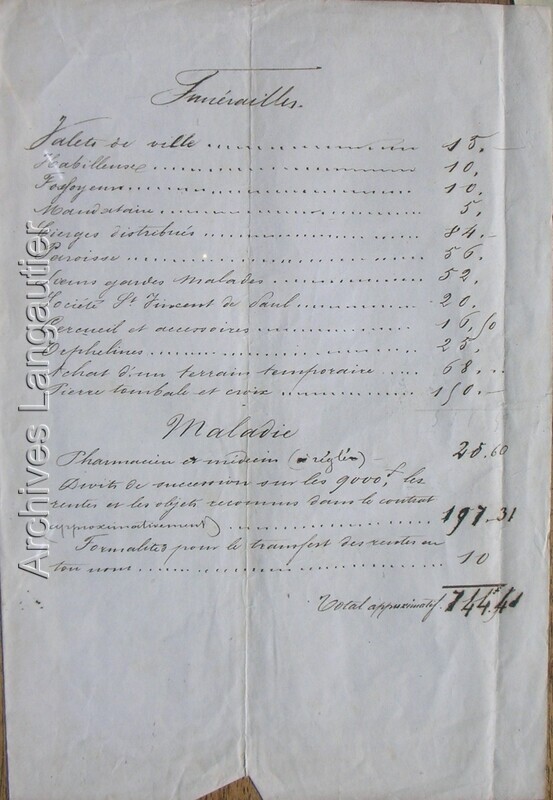 Funérailles.
Valets de ville ........ 15. -
Habilleuse ........ 10.
Fossoyeurs ........ 10.
Mandataire ........ 5.
Cierges distribués ........ 84. -
Paroisse ........ 56.
Sœurs gardes Malades ........ 52.
Société St Vincent de Paul ........ 20.
Cercueil et accessoires ........ 16,50
Orphelines ........ 25.
Achat d'un terrain temporaire ..... 68...
Pierre tombale et croix ..... 150. -
Maladie
Pharmacien et médecin (à régler) - 25.60
Droits de succession sur les 9000 f, les
rentes et les objets reconnus dans le contrat
(approximativement) ........ 197-31
Formalités pour le transfert des rentes en
ton nom ........ 10
Total approximatif. 744f,41
Archives Langautier